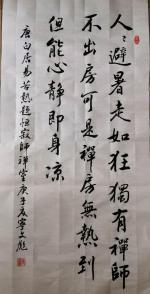 人々避暑走如狂獨有禪師
不出房可是禪房無熱到
但能心靜即身涼
唐白居易苦熱題恒寂師禪室庚子夏寧文